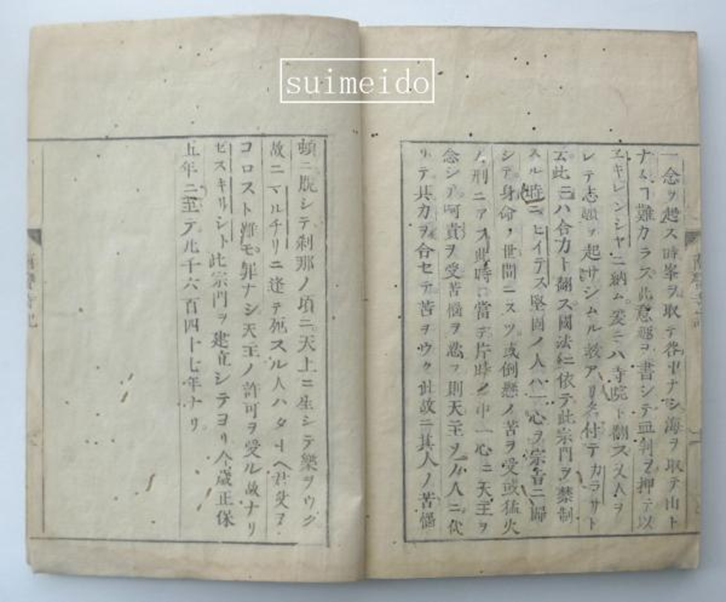 suimeido
一念ヲ起ス時峯ヲ取テ谷中ナシ海ヲ取テ山ト
ナス丁難カラス此意趣ヲ書シテ血判ヲ押テ以
ヱキレンシヤニ納ム爰ニハ寺院ト翻ス又人ヲ
シテ志願ヲ起サシムル教アリ名付テカラサト
云此ニハ合力ト翻ス國法ニ依テ此宗門ヲ禁制
スル時ニヒイテス堅固ノ人ハ一心ヲ宗旨ニ歸
シテ身命ノ世間ニスツ或倒懸ノ苦ヲ受或猛火
ノ刑ニアフ此時ニ當テ片時ノ中一心ニ天主ヲ
念シテ呵責ヲ受苦惱ヲ忍フ則天主ヲ人ニ代
リテ其力ヲ合セテ苦ヲウク此故ニ其人ノ苦惱
頓ニ脱シテ刹那ノ項ニ天上ニ生シテ樂ヲウク
故ニマルチリニ逢テ死スル人ハタトヘ君父ヲ
コロスト雖モ罪ナシ天主ノ許可ヲ受ル故ナリ
ゼスキリシト此宗門ヲ建立シテヨリ今歳正保
五年ニ至テ凡千六百四十七年ナリ